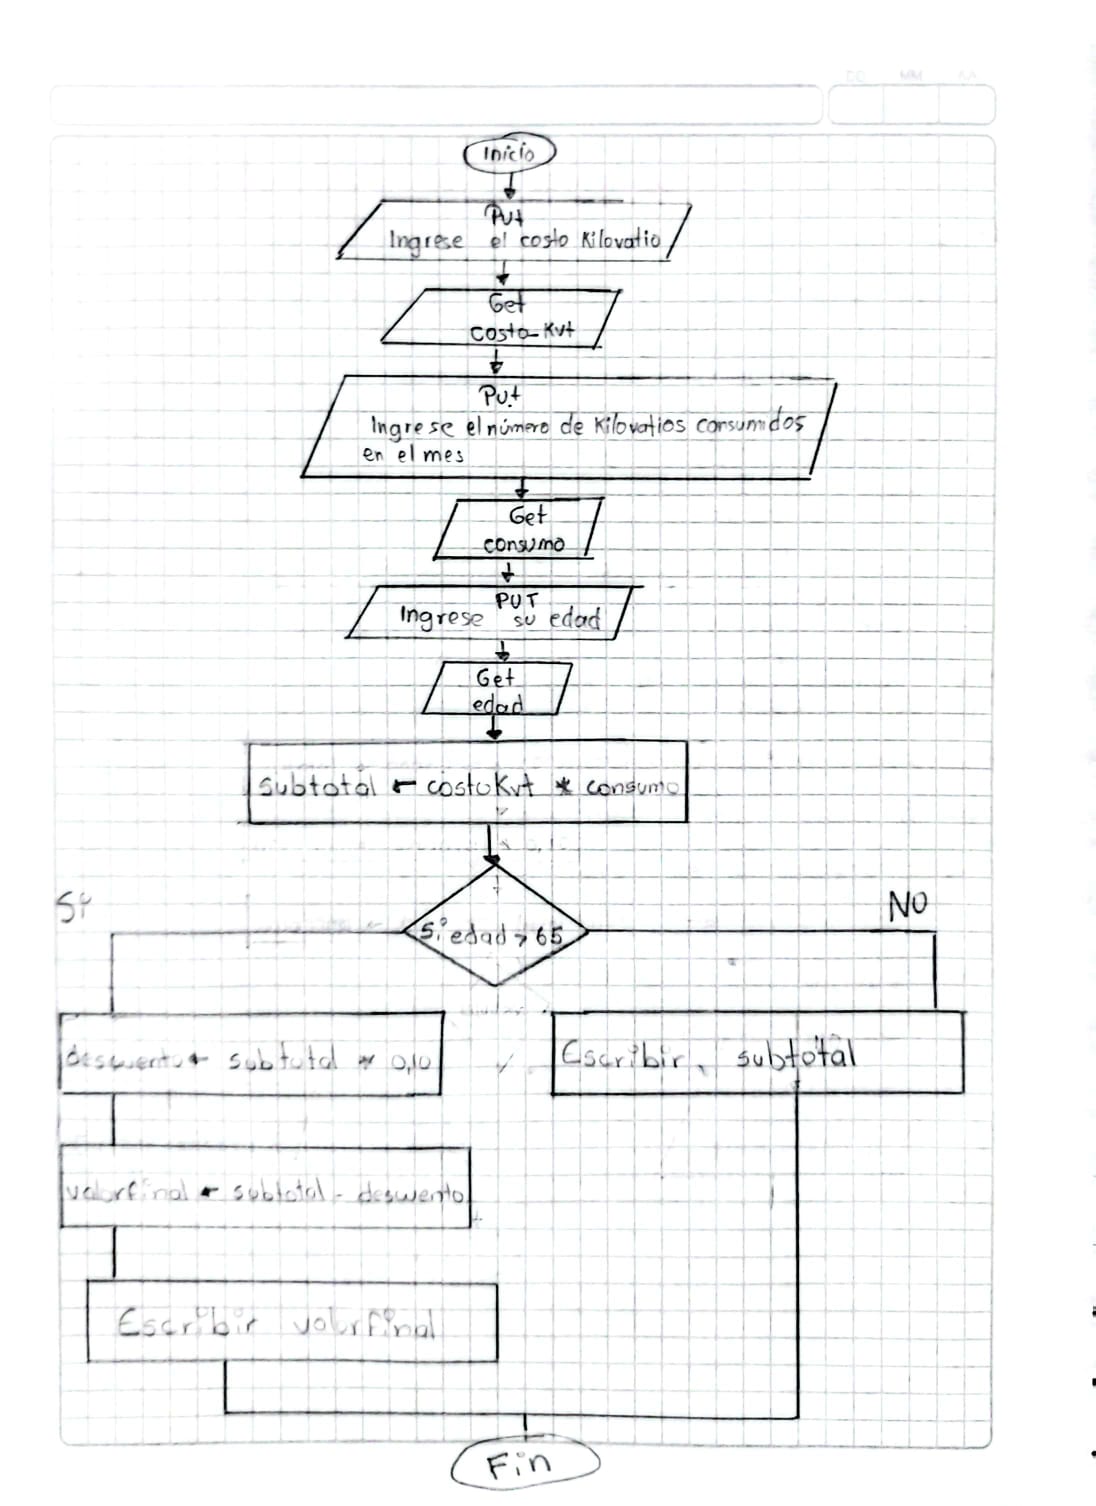 DD MM AA
Inicio
Put
Ingrese el costo Kilovatio
Get
costo-Kvt
Put
Ingrese el número de Kilovatios consumidos
en el mes
Get
consumo
PUT
Ingrese su edad
Get
edad
subtotal ← costoKvt * consumo
Si
NO
Si edad > 65
descuento ← subtotal * 0,10
Escribir, subtotal
valorfinal ← subtotal - descuento
Escribir valorfinal
Fin